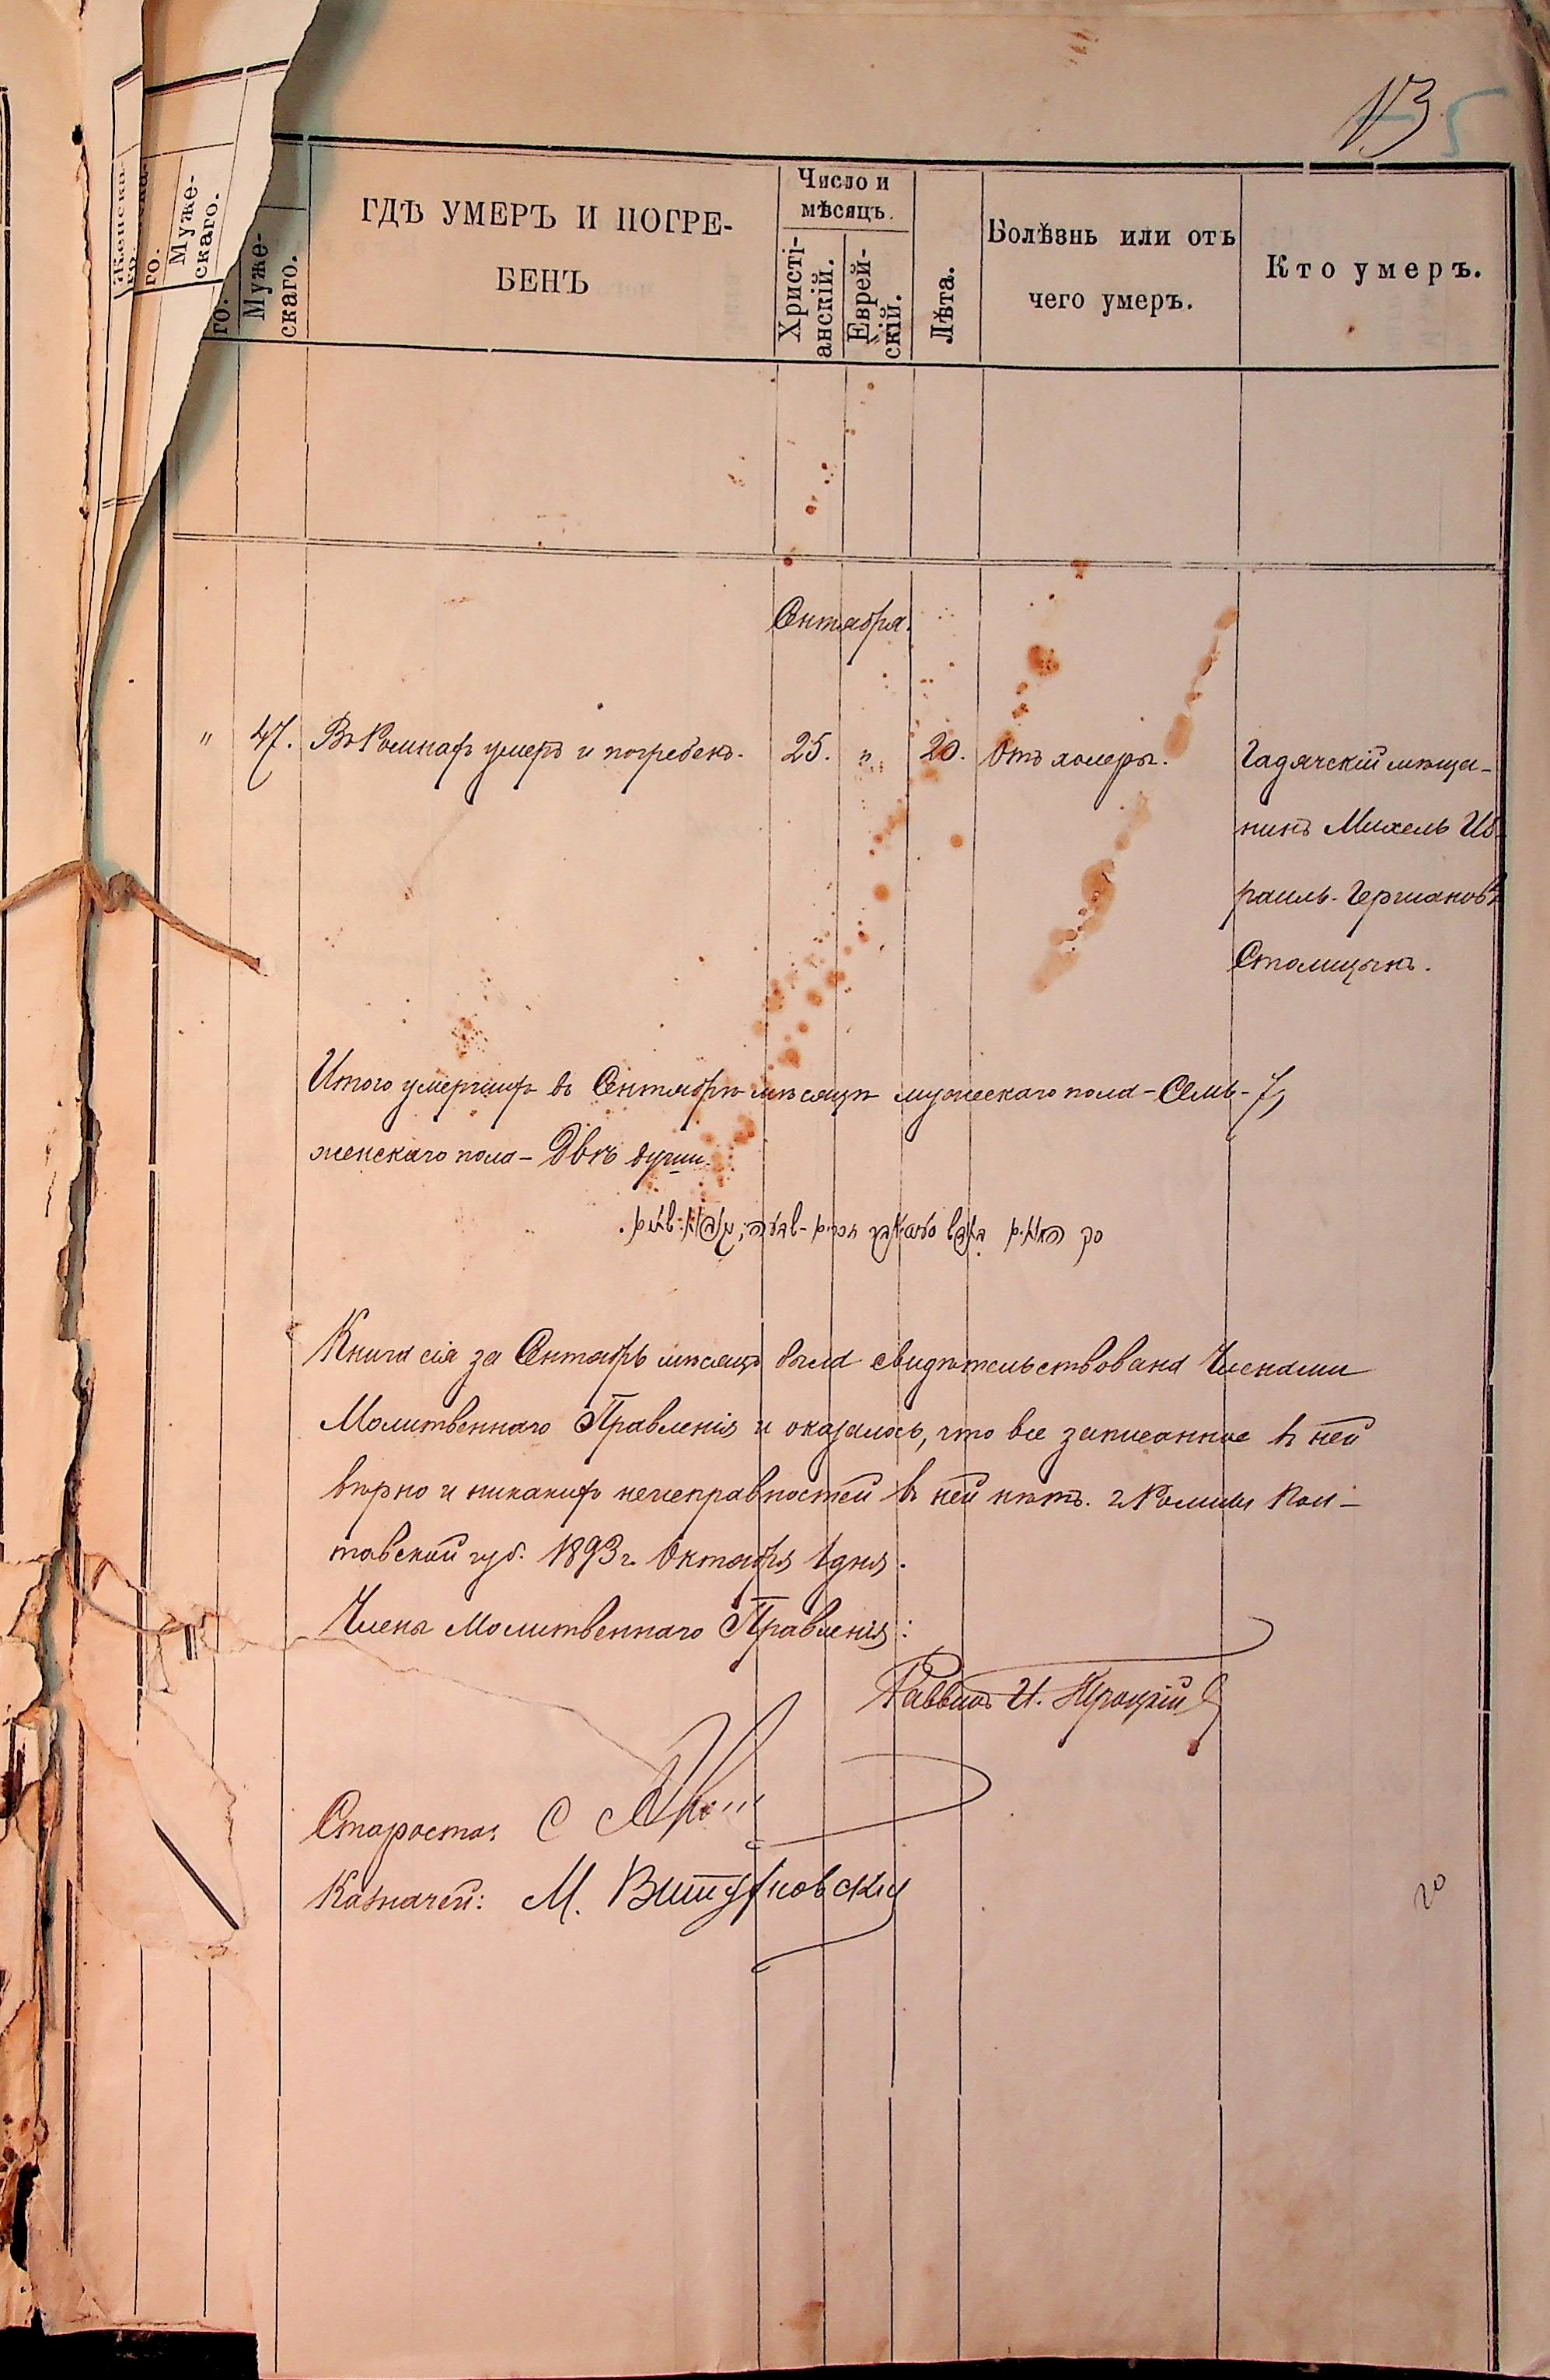 13 5
Женска-
го.
Муже-
скаго.
го.
Муже-
скаго.
ГДѢ УМЕРЪ И ПОГРЕ-
БЕНЪ
Число и
мѣсяцъ.
Христі-
анскій.
Еврей-
скій.
Лѣта.
Болѣзнь или отъ
чего умеръ.
Кто умеръ.
Сентября.
" 47. Въ Ромнахъ умеръ и погребенъ. 25. " 20. Отъ холеры. Гадячскій мѣща-
нинъ Михель Из-
раиль-Германовъ
Столицынъ.
Итого умершихъ въ Сентябрѣ мѣсяцѣ мужескаго пола - Семь - 7,
женскаго пола - Двѣ души.
Книга сія за Сентябрь мѣсяцъ была свидѣтельствована Членами
Молитвеннаго Правленія и оказалось, что все записанное въ ней
вѣрно и никакихъ неисправностей въ ней нѣтъ. г. Ромны Пол-
тавской губ. 1893 г. Октября 1 дня.
Члены Молитвеннаго Правленія:
Раввинъ И.
Староста: С
Казначей: М.
20